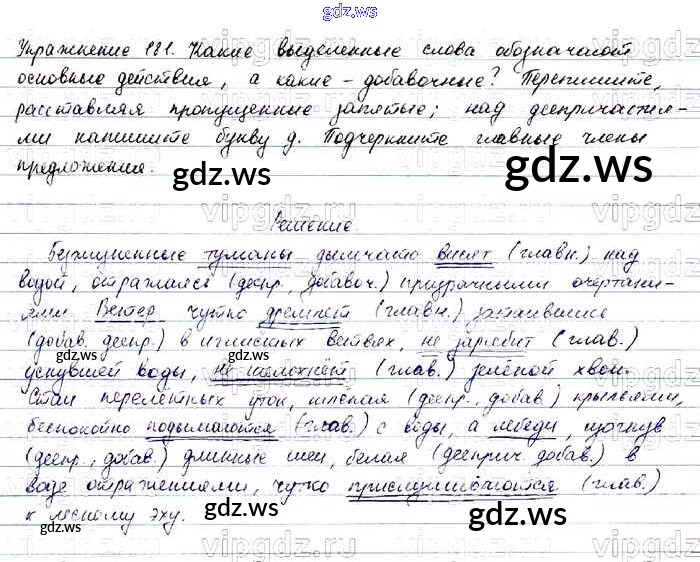 gdz.ws
Упражнение 181. Какие выделенные слова обозначают
основные действия, а какие – добавочные? Перепишите,
расставляя пропущенные запятые; над деепричастия-
ми напишите букву д. Подчеркните главные члены
предложения.
gdz.ws
gdz.ws
Решение.
Безжизненные туманы дымчато висят (главн.) над
водой, отражаясь (деепр., добавоч.) призрачными очертани-
ями. Ветер чутко дремлет (главн.) затаившись
(добав. деепр.) в иглистых ветвях, не зарябит (глав.)
уснувшей воды, не шелохнёт (глав.) зелёной хвои.
Стаи перелётных уток, шлёпая (деепр., добав.) крыльями,
беспокойно подымаются (глав.) с воды, а лебеди, изогнув
(деепр., добав.) длинные шеи, белая (дееприч. добав.) в
воде отражениями, чутко прислушиваются (глав.)
к лесному эху.
gdz.ws
gdz.ws
gdz.ws
gdz.ws
gdz.ws